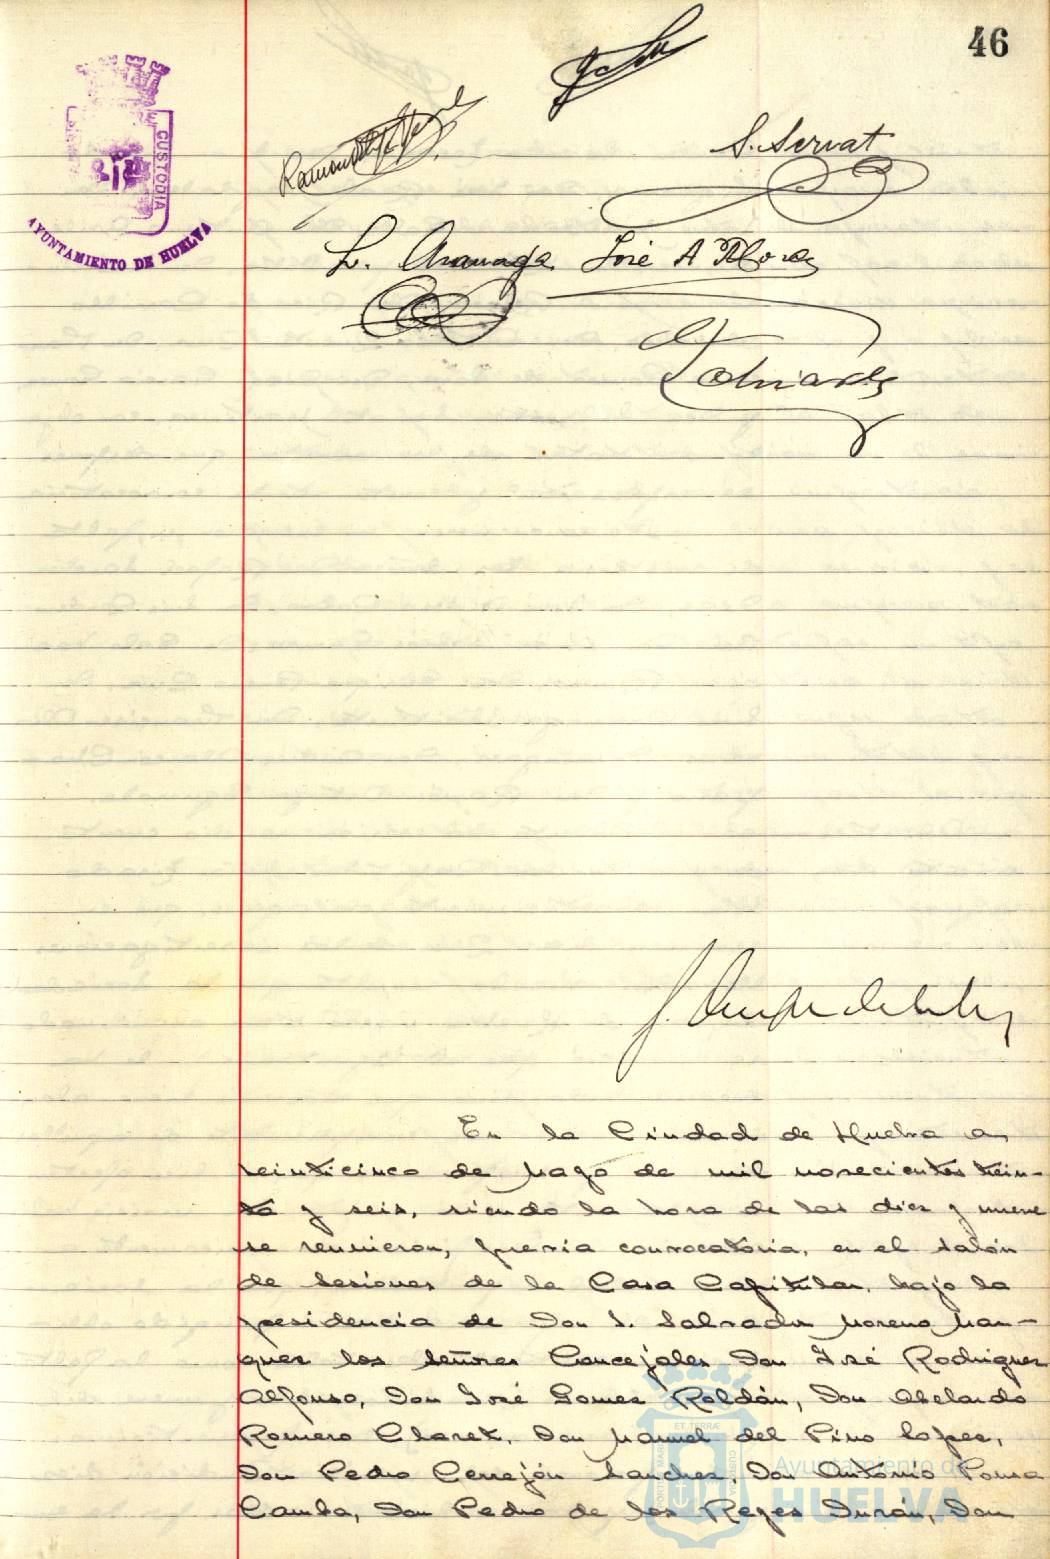 46
CUSTODIA
AYUNTAMIENTO DE HUELVA
S. Servat
En la Ciudad de Huelva a
veinticinco de Mayo de mil novecientos trein-
ta y seis, siendo la hora de las diez y nueve
se reunieron, previa convocatoria, en el salón
de sesiones de la Casa Capitular, bajo la
presidencia de Don S. Salvador Moreno Már-
quez los señores Concejales Don José Rodríguez
Alfonso, Don José Gomez Roldán, Don Abelardo
Romero Claret, Don Manuel del Pino Lopez,
Don Pedro Cerrejón Sanchez, Don Antonio Ponce
Don Pedro de los Reyes Durán, Don
Ayuntamiento de
HUELVA